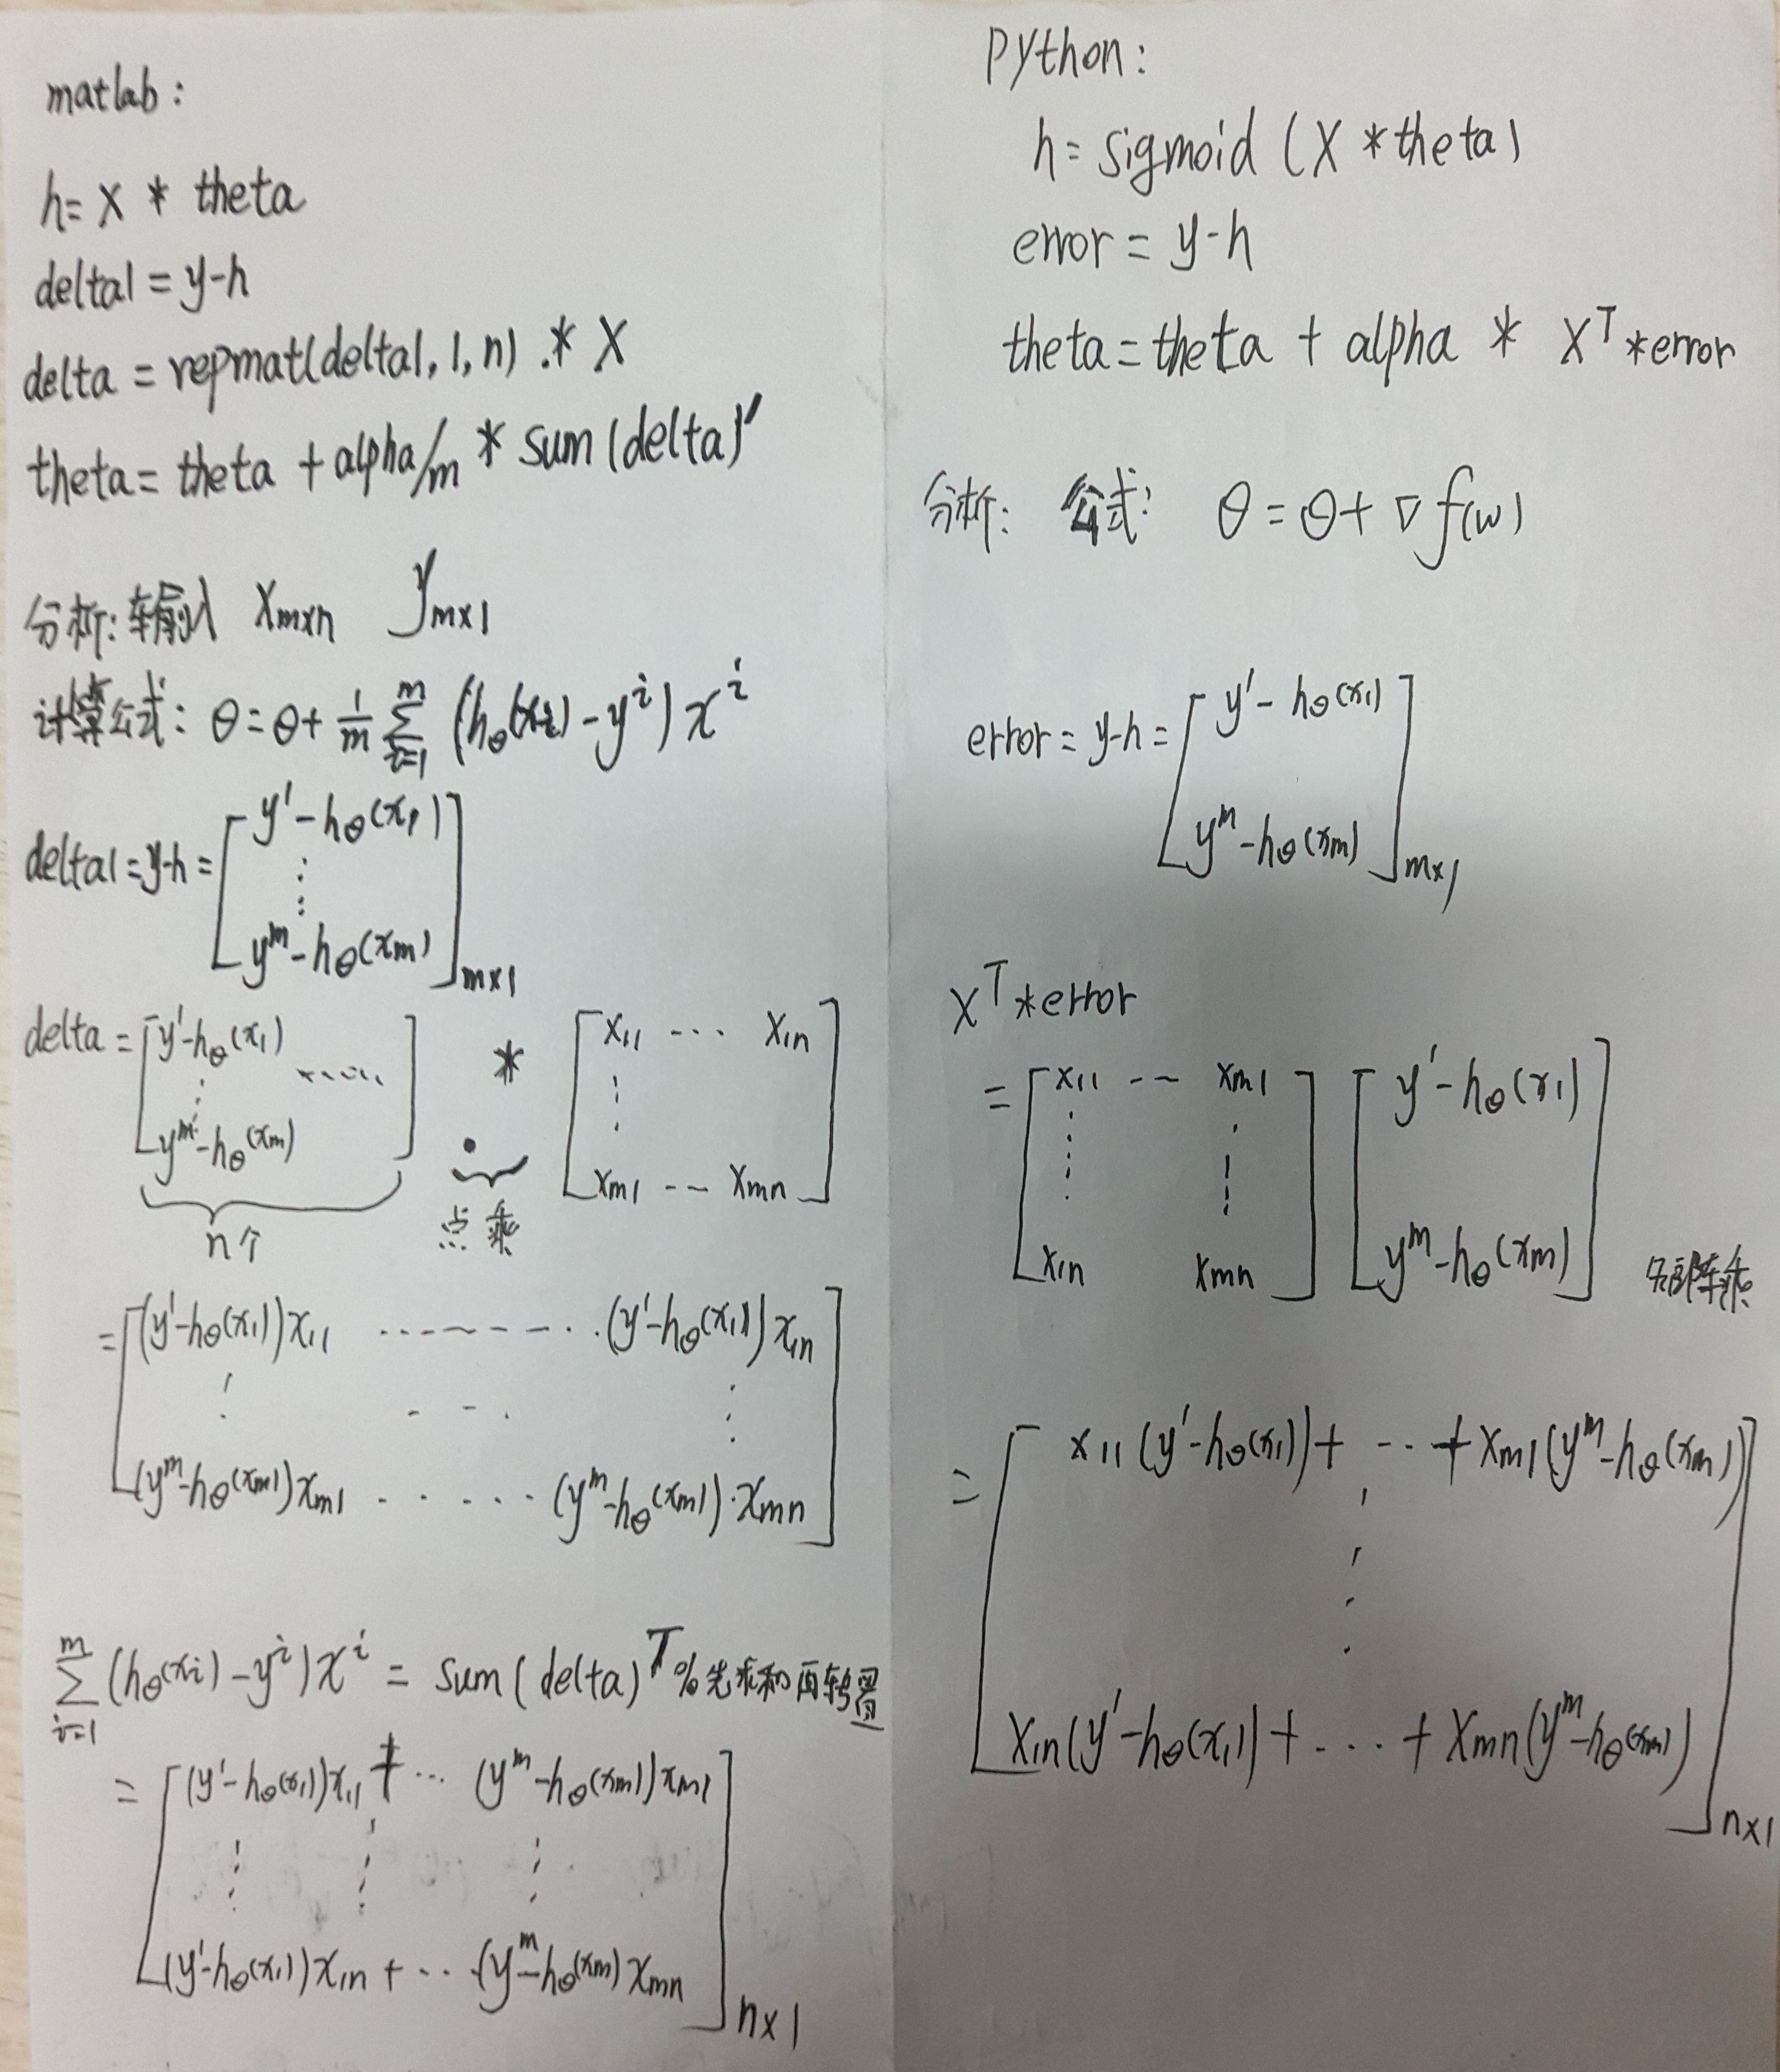 matlab:
h= X * theta
delta1 = y-h
delta = repmat(delta1, 1, n) .* X
theta= theta + alpha/m * sum (delta)'
分析: 输入 Xm×n ym×1
计算公式: θ=θ+ 1/m Σ i=1 m (hθ(xi) - y^i) x^i
delta1 = y-h = [ y' - hθ(x1)
⋮
y^m - hθ(xm) ] m×1
delta = [ y' - hθ(x1) ...... ] * [ x11 --- x1n
⋮ ⋮
y^m - hθ(xm) ] • xm1 -- xmn ]
n个 点乘
= [ (y'-hθ(x1))x11 -------- (y'-hθ(x1))x1n
⋮ - - - ⋮
(y^m-hθ(xm))xm1 ..... (y^m-hθ(xm))·xmn ]
Σ i=1 m (hθ(xi) - y^i) x^i = sum ( delta)^T %先求和再转置
= [ (y'-hθ(x1))x11 + ... (y^m-hθ(xm))xm1
⋮ ⋮ ⋮
(y'-hθ(x1))x1n + ... (y^m-hθ(xm)xmn ] n×1
python:
h= sigmoid (X *theta)
error = y-h
theta = theta + alpha * X^T *error
分析: 公式: θ = θ+ ∇ f(w)
error = y-h = [ y' - hθ(x1)
y^m - hθ(xm) ] m×1
X^T *error
= [ x11 -- xm1 ] [ y' - hθ(x1)
⋮ ⋮
x1n xmn ] y^m - hθ(xm) ] 矩阵乘
= [ x11 (y'-hθ(x1)) + ... + xm1 (y^m-hθ(xm))
⋮
x1n(y'-hθ(x1)) + ... + xmn (y^m-hθ(xm)) ] n×1